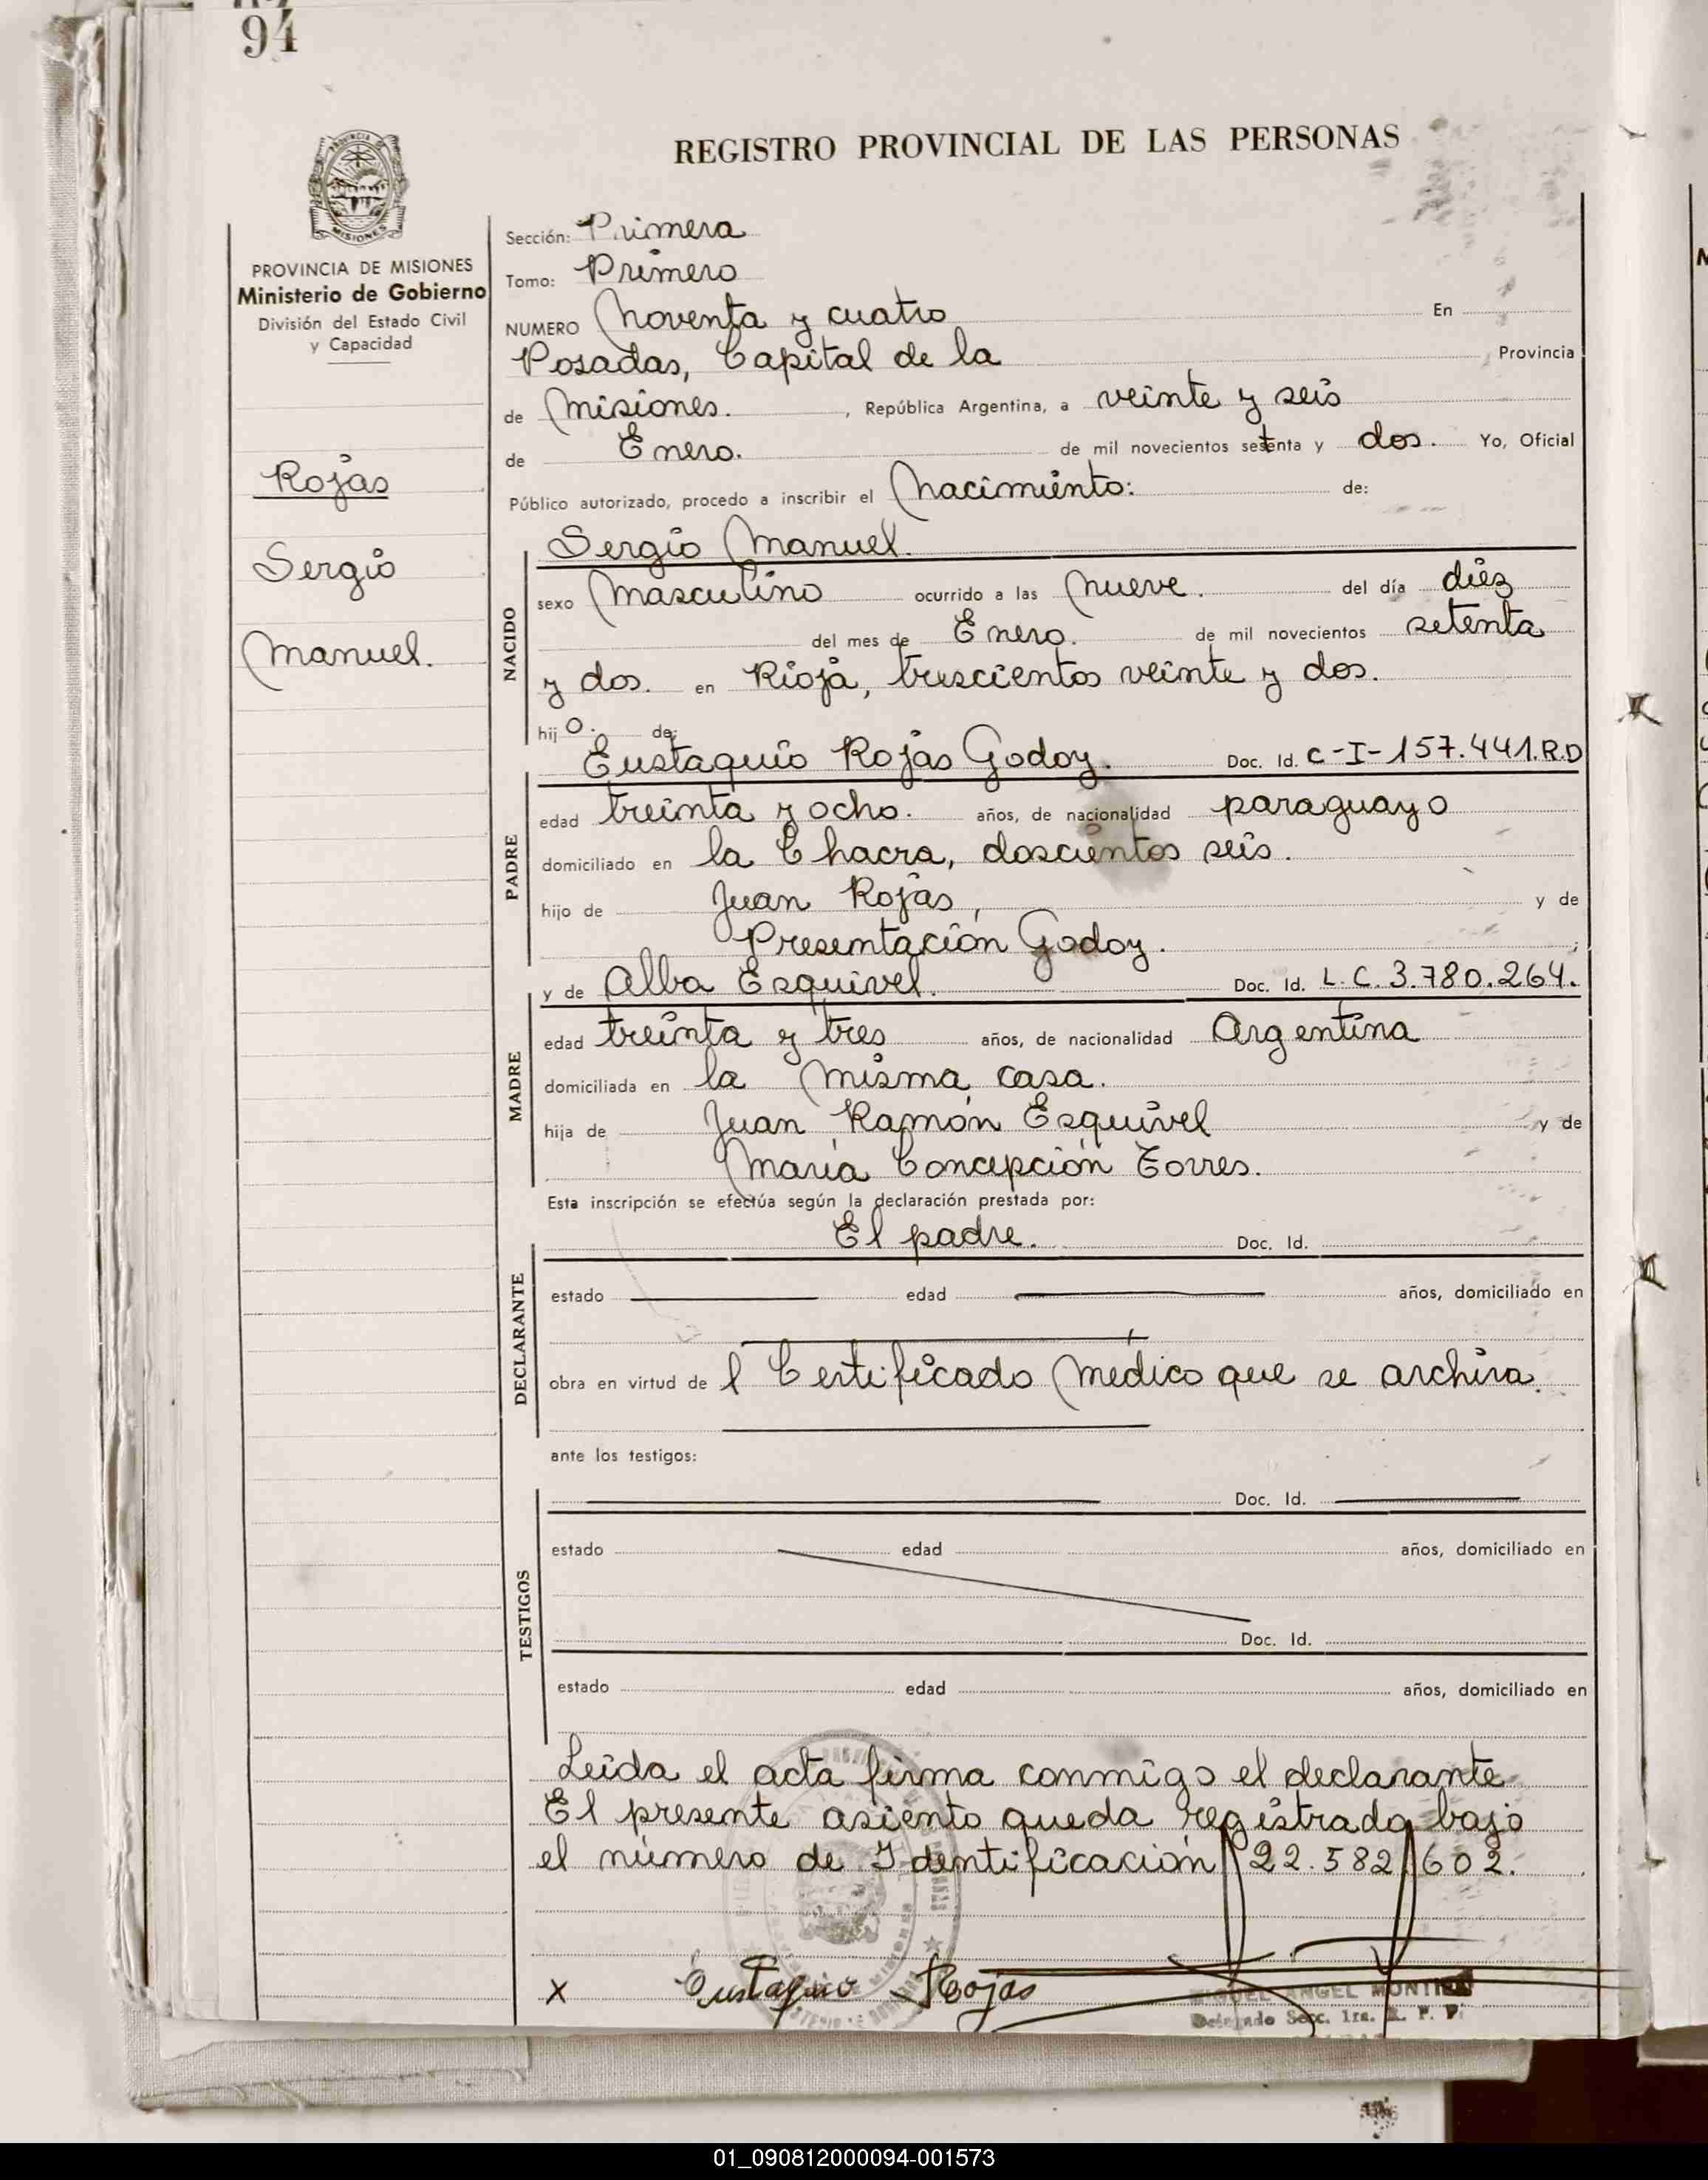 94
REGISTRO PROVINCIAL DE LAS PERSONAS
MISIONES
PROVINCIA DE MISIONES
Ministerio de Gobierno
División del Estado Civil
y Capacidad
Rojas
Sergio
Manuel.
Sección: Primera
Tomo: Primero
NUMERO Noventa y cuatro En
Posadas, Capital de la Provincia
de Misiones. , República Argentina, a veinte y seis
de Enero. de mil novecientos setenta y dos. Yo, Oficial
Público autorizado, procedo a inscribir el Nacimiento: de:
Sergio Manuel.
NACIDO
sexo Masculino ocurrido a las Nueve. del día diez
del mes de Enero. de mil novecientos setenta
y dos. en Rioja, trescientos veinte y dos.
hijo. de:
Eustaquio Rojas Godoy. Doc. Id. C-I-157.441.R.D
PADRE
edad treinta y ocho. años, de nacionalidad paraguayo
domiciliado en la Chacra, doscientos seis.
hijo de Juan Rojas, y de
Presentación Godoy. ;
y de Alba Esquivel. Doc. Id. L.C. 3.780.264.
MADRE
edad treinta y tres años, de nacionalidad Argentina
domiciliada en la misma casa.
hija de Juan Ramón Esquivel y de
María Concepción Torres.
Esta inscripción se efectúa según la declaración prestada por:
El padre. Doc. Id.
DECLARANTE
estado edad años, domiciliado en
obra en virtud de l Certificado Médico que se archiva.
ante los testigos:
Doc. Id.
TESTIGOS
estado edad años, domiciliado en
Doc. Id.
estado edad años, domiciliado en
Leída el acta firma conmigo el declarante
El presente asiento queda registrado bajo
el número de Identificación 22.582.602.
x Eustaquio Rojas
MIGUEL ANGEL MONTIEL
Delegado Secc. 1ra. R. P. P.
01_090812000094-001573